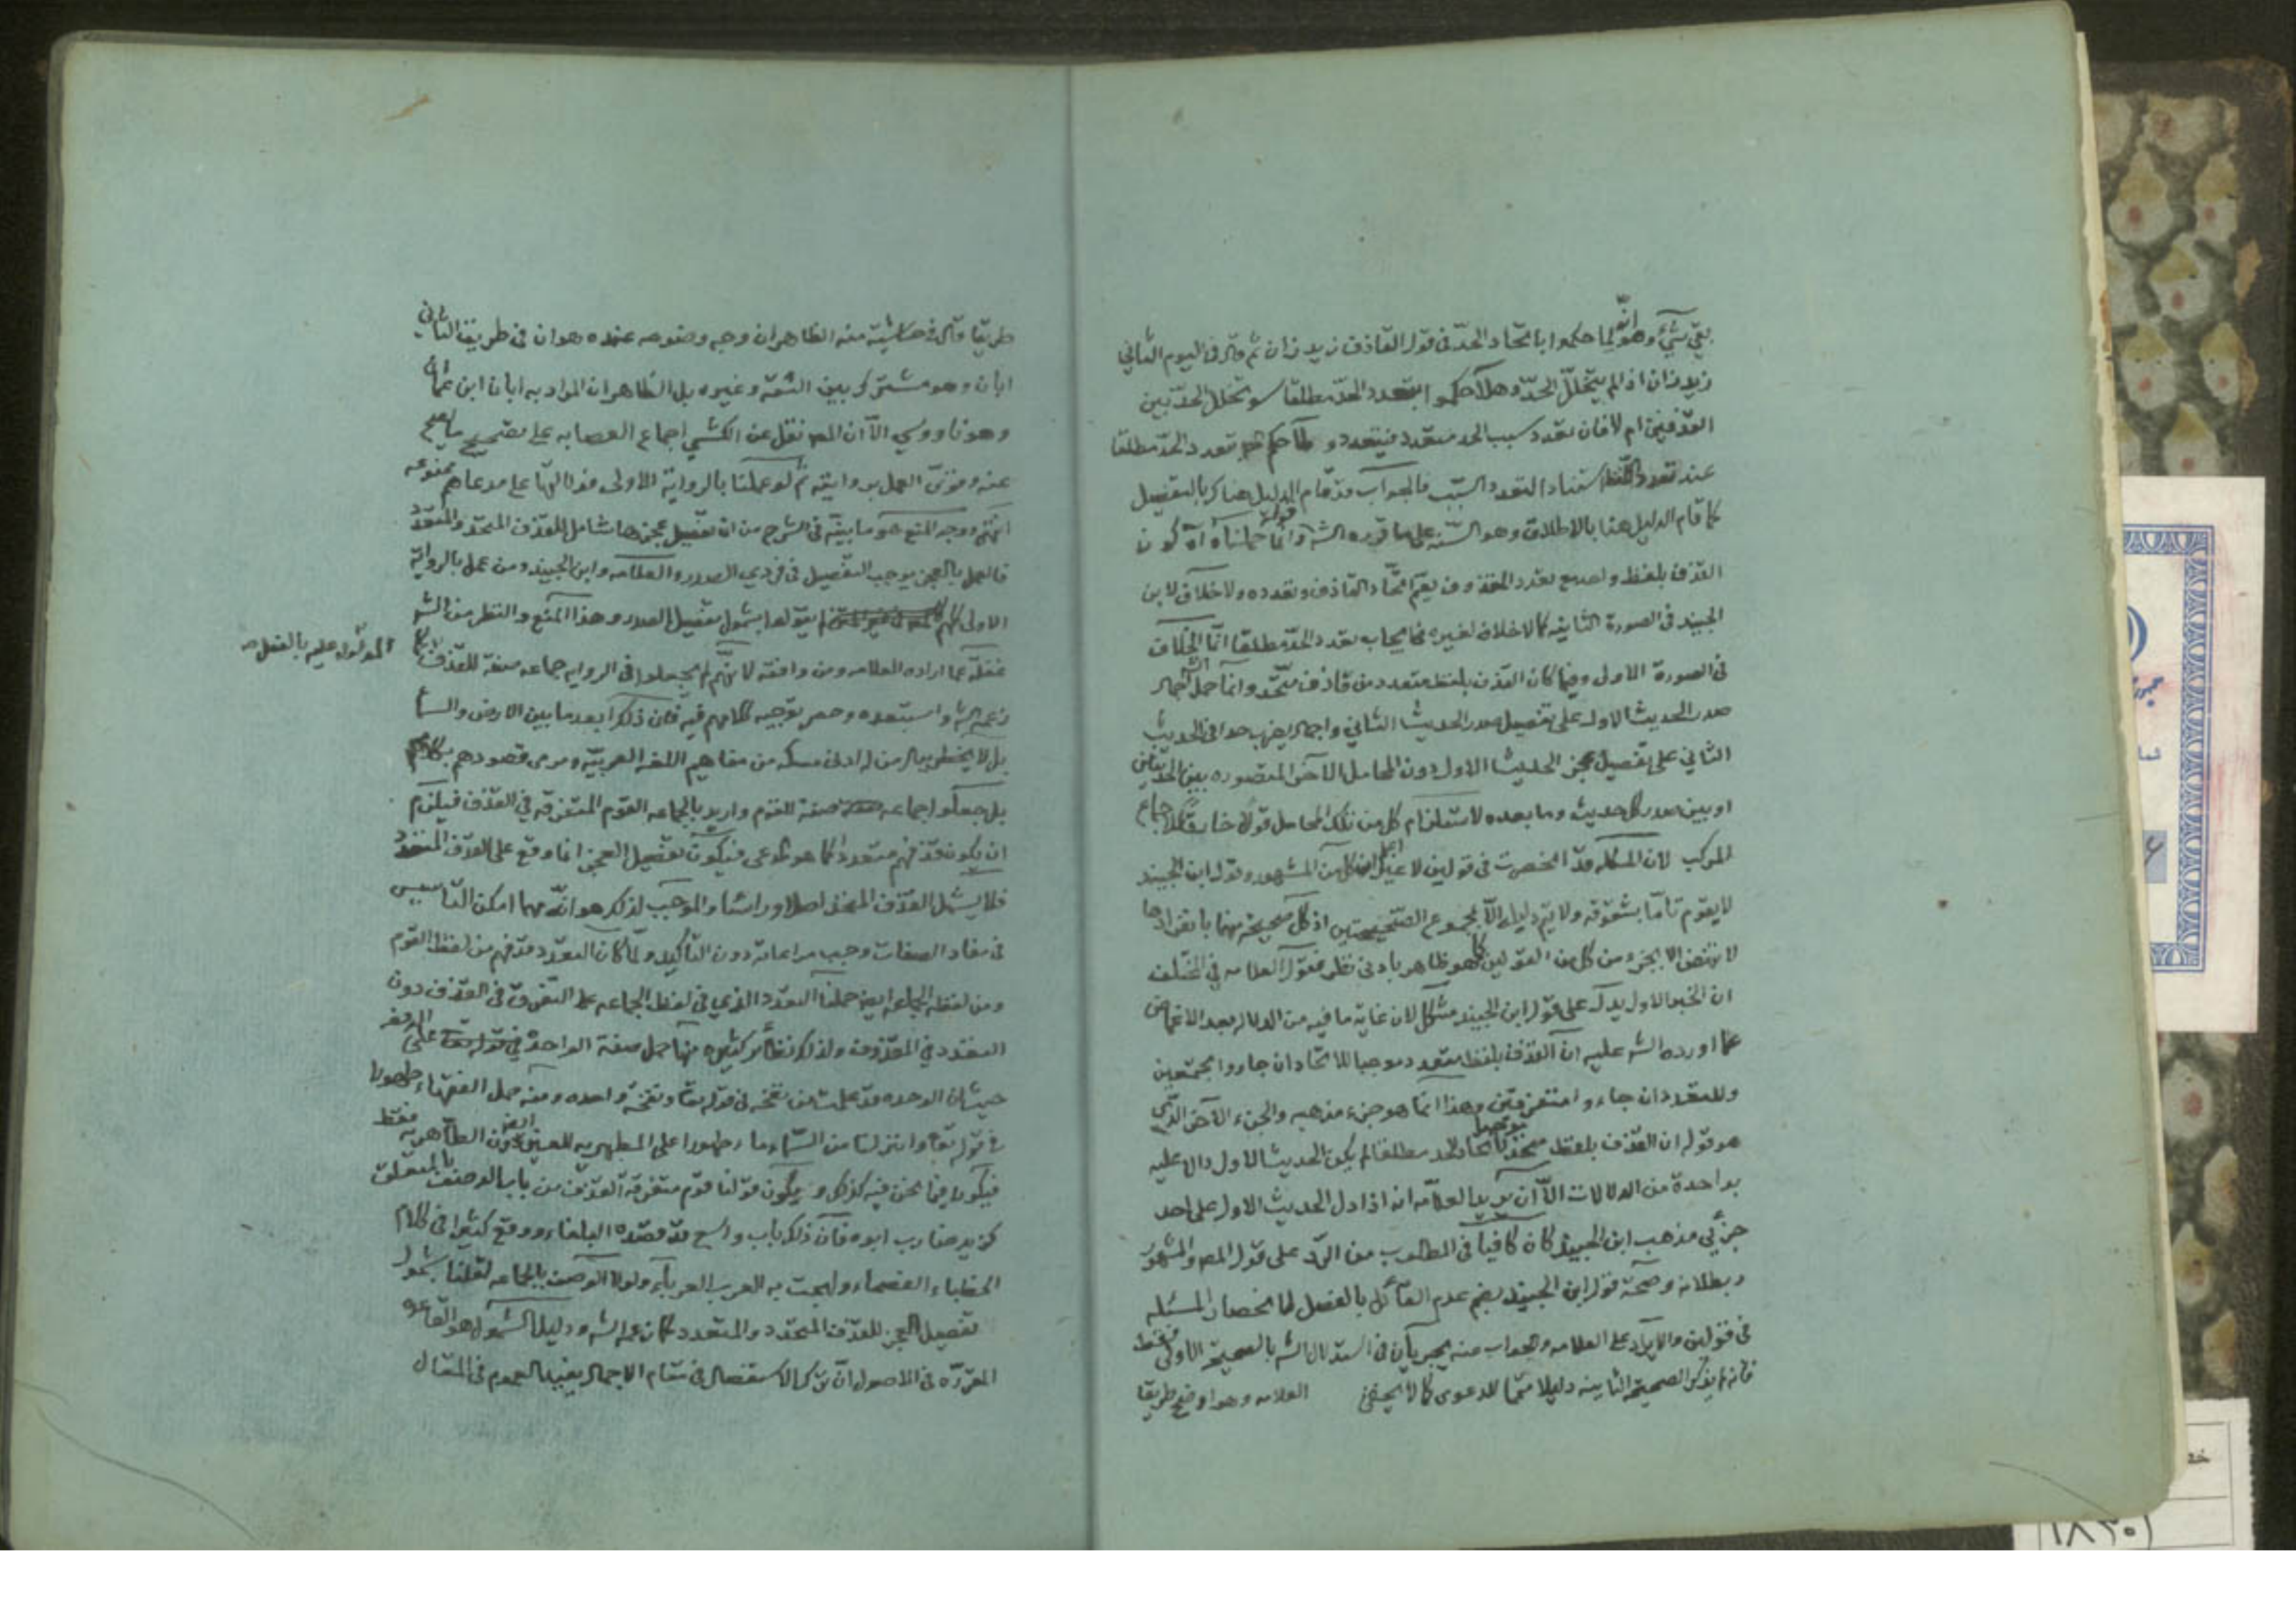 بقى شيء وهو انه لما حكموا باتحاد الحدّ فى قول القاذف زيد زان ثم قال فى اليوم الثانى
زيد زان اذا لم يتخلل الحدّ وهلا حكموا بتعدد الحدّ مطلقا سو تخلل الحدّ بين
القذفين ام لا فان تعدد سبب الحد متعدد فيتعدد و كما حكم بتعدد الحدّ مطلقا
عند تعدد اللفظ استنادا لتعدد السبب فالجواب قد قام الدليل هناك بالتفصيل
كما قام الدليل هنا بالاطلاق وهو السنة على ما قرره الشه قوله وانما حملناه آه كون
القذف بلفظ واحد مع تعدد المقذوف يعم اتحاد القاذف وتعدده ولا خلاف لابن
الجنيد فى الصورة الثانية كما لا خلاف لغيره فى ايجاب تعدد الحدّ مطلقا انما الخلاف
فى الصورة الاولى وفيما كان القذف بلفظ متعدد من قاذف متحد وانما حمل الشه اجمال
صدر الحديث الاول على تفصيل صدر الحديث الثانى واجمال يضرب حدا فى الحديث
الثانى على تفصيل عجز الحديث الاول دون المحامل الاخر المتصوره بين الحديثين
او بين صدر كل حديث وما بعده لاستلزام كل من تلك المحامل قولا خارقا للاجماع
المركب لان المسئله قد انحصرت فى قولين لا غير كل من المشهور وقول ابن الجنيد
لا يقوم تاما بشقوقه ولا يتم دليله الا بمجموع الصحيحتين اذ كل صحيحة منهما بانفرادها
لا تنتهض الا بجزء من كل من القولين كما هو ظاهر بادنى نظر فقول العلامه فى المختلف
ان الخبر الاول يدل على قول ابن الجنيد مشكل لان غاية ما فيه من الدلاله بعد الاغماض
عما اورده الشه عليه ان القذف بلفظ متعدد موجبا للاتحاد ان جاءوا مجتمعين
وللتعدد ان جاءوا متفرقين وهذا انما هو جزء مذهبه والجزء الاخر الذى
هو قوله ان القذف بلفظ متحد موجبا لاتحاد الحد مطلقا لم يكن الحديث الاول دالا عليه
بواحدة من الدلالات الا ان يريد العلامه انه اذا دل الحديث الاول على احد
جزئى مذهب ابن الجنيد كان كافيا فى المطلوب من الرد على قول المص والمشهور
وبطلانه وصحة قول ابن الجنيد بضم عدم القائل بالفصل لما انحصار المسئله
فى قولين والايراد على العلامه والجواب عنه يجريان فى استدلال الشه بالصحيحة الاولى فقط
فانه لم يذكر الصحيحة الثانيه دليلا متمما للدعوى كما لا يخفى العلامه وهو اوضح طريقا
طريقا وقال فى حاشية منه الظاهر ان وجه وضوحه عنده هو ان فى طريقة الثانى
ابان وهو مشترك بين الثقة وغيره بل الظاهر ان المراد به ابان ابن عثمان
وهو ناووسى الا ان المص نقل عن الكشى اجماع العصابه على تصحيح ما يصح
عنه وقوى العمل بروايته ثم لو عملنا بالرواية الاولى فدلالتها على مدعاهم ممنوعه
انتهى ووجه المنع هو ما بينه فى الشرح من ان تفصيل عجزها شامل للقذف المتحد والمتعدد
فالعمل بالعجز يوجب التفصيل فى فردى الصدر والعلامه وابن الجنيد ومن عمل بالرواية
الاولى كلهم يقولوا بشمول تفصيل الصدر وهذا المنع والنظر من الشه
غفلة عما اراده العلامه ومن وافقه لانهم لم يجعلوا فى الروايه جماعه صفة للقذف كما
المدلول عليه بالفعل ص
زعم الشه واستبعده وحصر توجيه كلامهم فيه فان ذلك ابعد ما بين الارض والسماء
بل لا يخطر ببال من له ادنى مسكه من مفاهيم اللغة العربية ومرمى قصودهم بكلامهم
بل جعلوا جماعه صفة للقوم واريد بالجماعه القوم المتفرقه فى القذف فيلزم
ان يكون قذفهم متعددا كما هو المدعى فيكون تفصيل العجز انما وقع على القذف المتعدد
فلا يشمل القذف المتحد اصلا وراسا والموجب لذلك هو انه مهما امكن التاسيس
فى مفاد الصفات وجب مراعاته دون التاكيد ولما كان التعدد قد فهم من لفظ القوم
ومن لفظ الجماعه ايضا حملنا التعدد الذى فى لفظ الجماعه على التفرق فى القذف دون
التعدد فى المقذوف ولذلك نظائر كثيره منها حمل صفة الواحدة فى قوله تعالى على
حيث ان الوحده قد علمت من نفخه فى قوله تعالى ونفخة واحده ومنه حمل الفقهاء طهورا
فى قوله تعالى وانزلنا من السماء ماء طهورا على المطهريه للغير دون الطاهريه فقط
فيكون فيما نحن فيه كذلك ويكون قولنا قوم متفرقة القذف من باب الوصف بالمتعلق
كزيد ضارب ابوه فان ذلك باب واسع قد قصده البلغاء ووقع كثيرا فى كلام
الخطباء الفصحاء ولهجت به العرب العرباء ولولا الوصف بالجماعه لقلنا بشمول
تفصيل العجز للقذف المتحد والمتعدد كما زعمه الشه ودليل الشمول هو القاعده
المقرره فى الاصول ان ترك الاستفصال فى مقام الاجمال يفيد العموم فى المقال